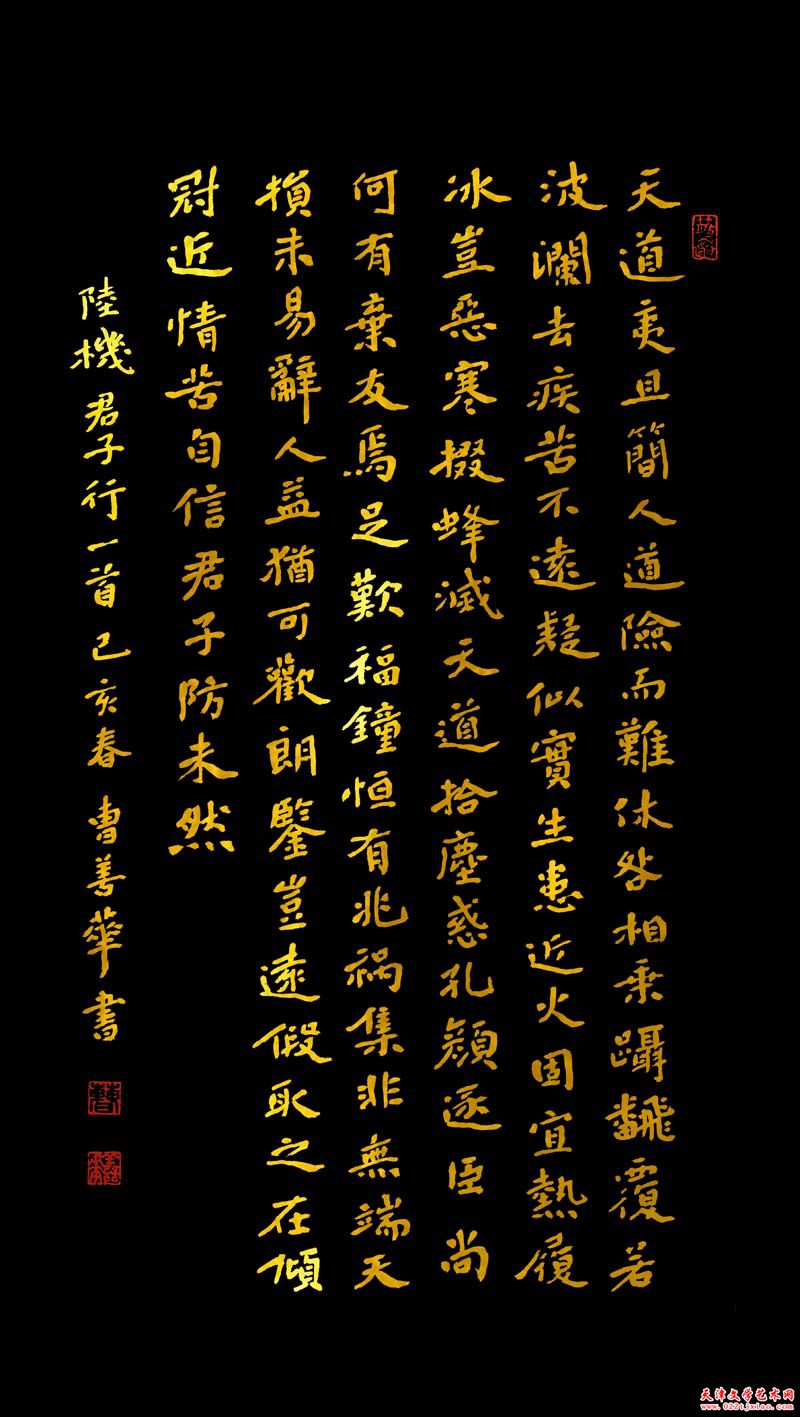 天道夷且簡人道險而難休咎相乘躡飜覆若
波瀾去疾苦不遠疑似實生患近火固宜熱履
冰豈惡寒掇蜂滅天道拾塵惑孔顏逐臣尚
何有棄友焉足歎福鐘恒有兆禍集非無端天
損未易辭人益猶可歡朗鑒豈遠假取之在傾
冠近情苦自信君子防未然
陸機君子行一首己亥春曹善華書
天津文学艺术网
www.022tjxiao.com